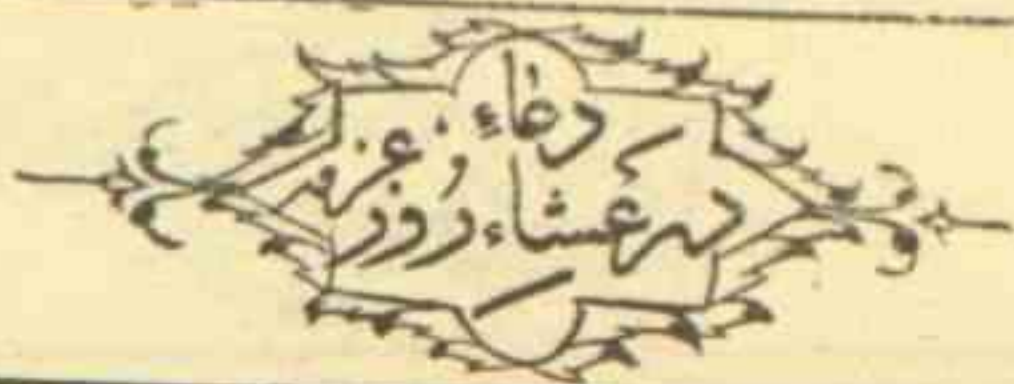 دعاءِ
در عشاء روز عرفه